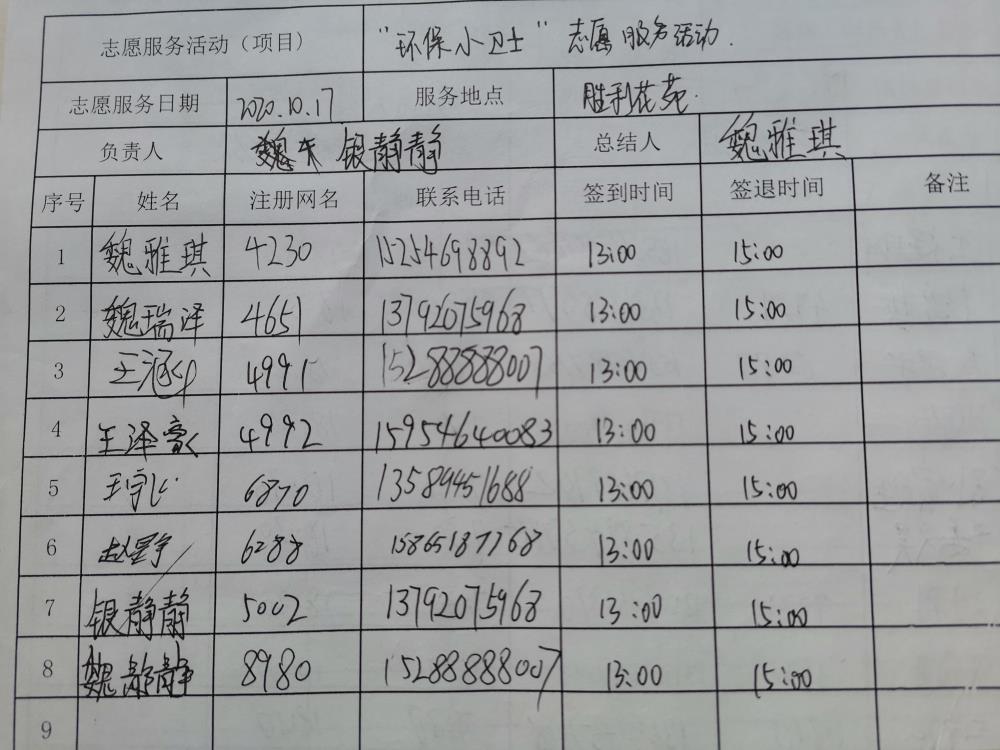 志愿服务活动（项目） “环保小卫士”志愿服务活动.
志愿服务日期 2020.10.17 服务地点 胜利花苑.
负责人 魏 银静静 总结人 魏雅琪
序号 姓名 注册网名 联系电话 签到时间 签退时间 备注
1 魏雅琪 4230 15254698892 13:00 15:00
2 魏瑞泽 4651 13792075968 13:00 15:00
3 王涵 4991 15288888007 13:00 15:00
4 王泽豪 4992 15954640083 13:00 15:00
5 王宇 6870 13589451688 13:00 15:00
6 赵 6288 15865187768 13:00 15:00
7 银静静 5002 13792075968 13:00 15:00
8 魏静静 8980 15288888007 13:00 15:00
9